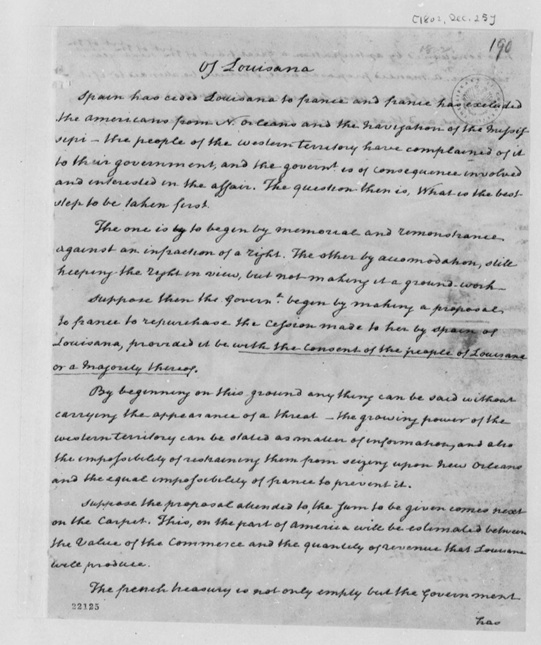 [1802, Dec. 25]
190
Of Louisana
Spain has ceded Louisana to france and france has excluded
the americans from N. Orleans and the navigation of the Missis-
sipi – the people of the western territory have complained of it
to their government, and the governt. is of consequence involved
and interested in the affair. The question then is, What is the best
step to be taken first.
The one is to begin by memorial and remonstrance
against an infraction of a right. The other by accomodation, still
keeping the right in view, but not making it a ground-work
Suppose then the Governt. begin by making a proposal
to france to repurchase the Cession made to her by Spain of
Louisiana, provided it be with the Consent of the people of Louisiana
or a Majority thereof.
By beginning on this ground any thing can be said without
carrying the appearance of a threat – the growing power of the
western territory can be stated as matter of information, and also
the impossibility of restraining them from seizing upon New Orleans
and the equal impossibility of france to prevent it.
Suppose the proposal attended to, the sum to be given comes next
on the Carpet. This, on the part of america will be estimated between
the Value of the Commerce and the quantity of revenue that Louisiana
will produce.
The french treasury is not only empty but the Government
22125
has